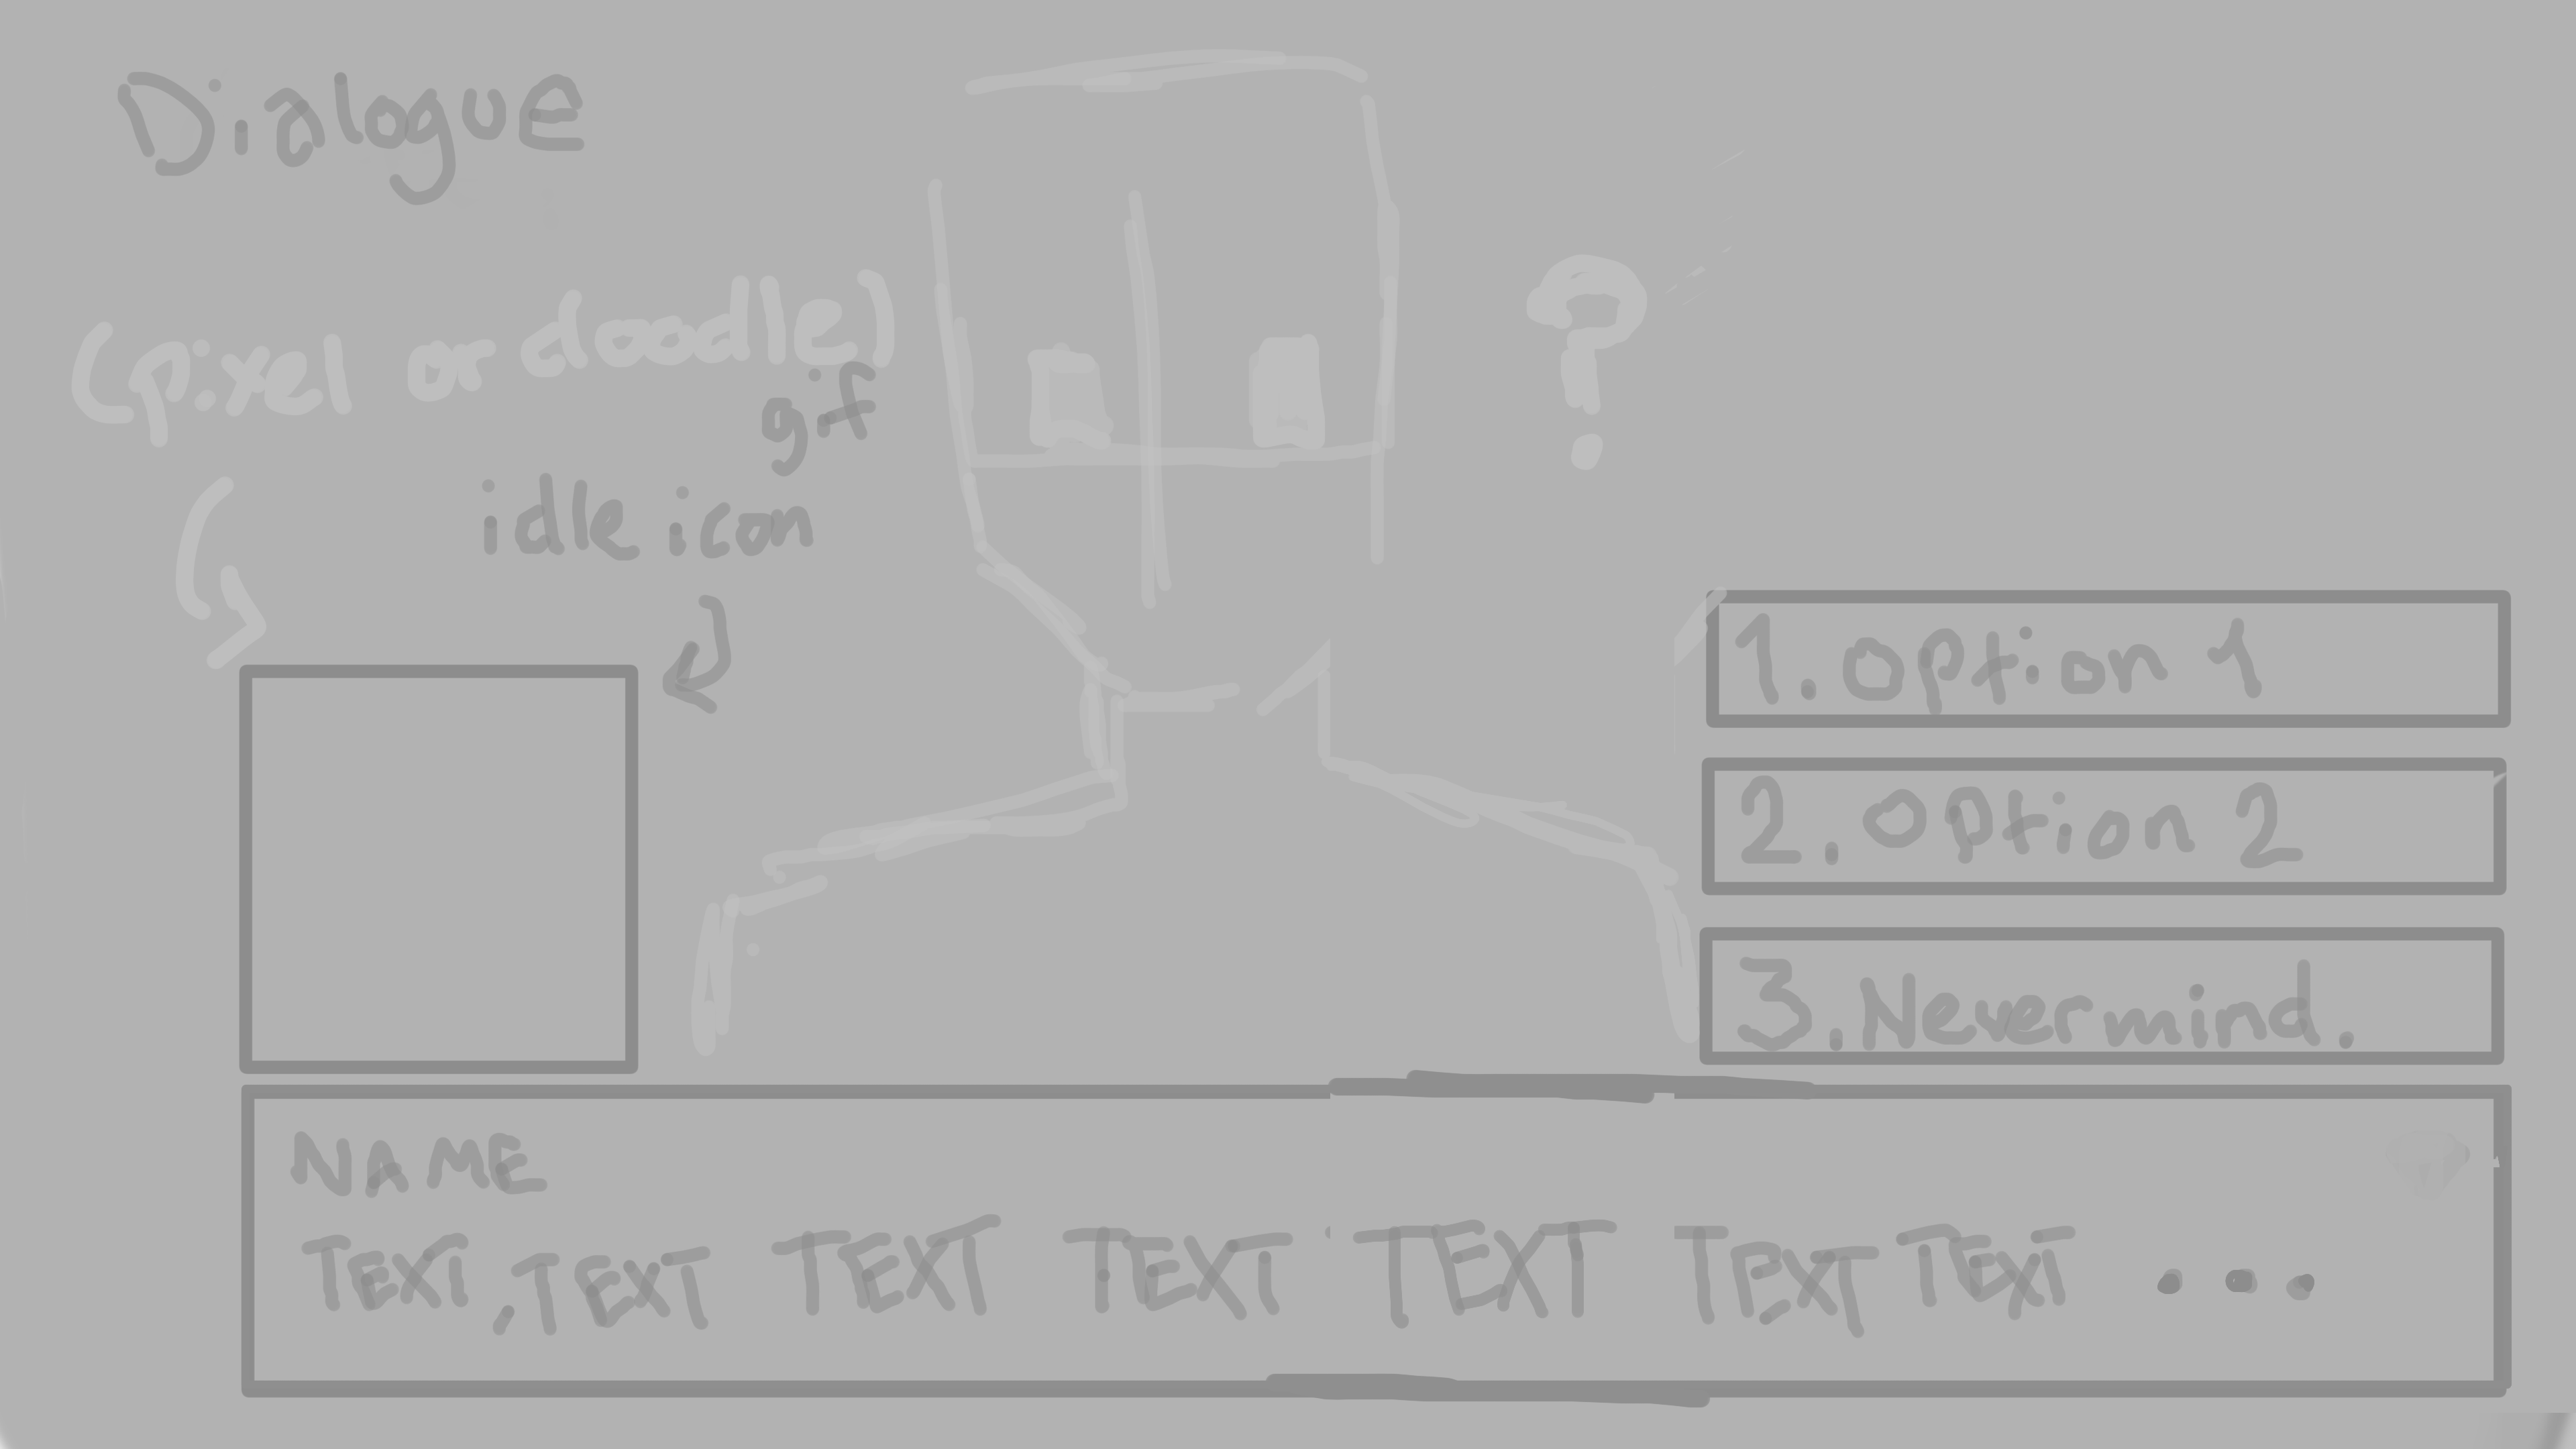 Dialogue
(pixel or doodle)
gif
idle icon
?
1. Option 1
2. Option 2
3. Nevermind.
NAME
TEXT, TEXT TEXT TEXT TEXT TEXT TEXT ...